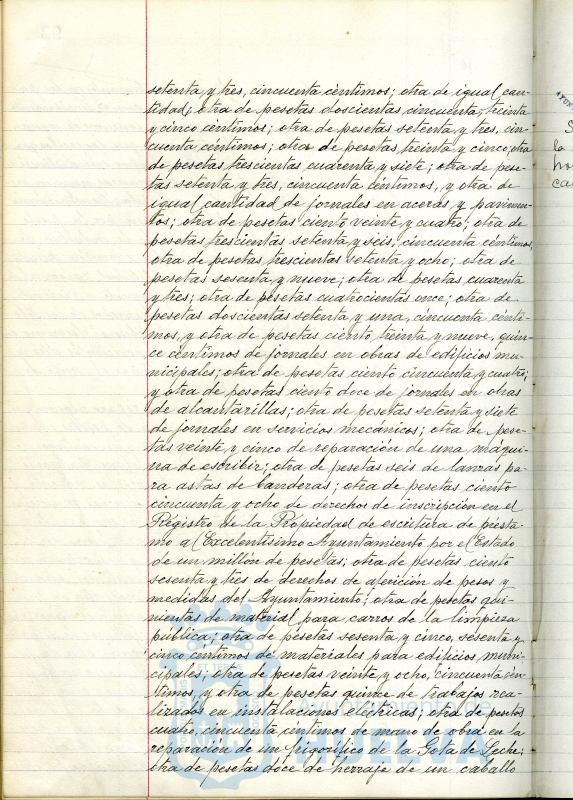 setenta y tres, cincuenta céntimos; otra de igual can-
tidad; otra de pesetas doscientas cincuenta, treinta
y cinco céntimos; otra de pesetas setenta y tres, cin-
cuenta céntimos; otra de pesetas treinta y cinco; otra
de pesetas trescientas cuarenta y siete; otra de pese-
tas setenta y tres, cincuenta céntimos, y otra de
igual cantidad de jornales en aceras y pavimen-
tos; otra de pesetas ciento veinte y cuatro; otra de
pesetas trescientas setenta y seis, cincuenta céntimos,
otra de pesetas trescientas setenta y ocho; otra de
pesetas sesenta y nueve; otra de pesetas cuarenta
y tres; otra de pesetas cuatrocientas once; otra de
pesetas doscientas setenta y una, cincuenta cénti-
mos, y otra de pesetas ciento treinta y nueve, quin-
ce céntimos de jornales en obras de edificios mu-
nicipales; otra de pesetas ciento cincuenta y cuatro;
y otra de pesetas ciento doce de jornales en obras
de alcantarillas; otra de pesetas setenta y siete
de jornales en servicios mecánicos; otra de pese-
tas veinte y cinco de reparación de una máqui-
na de escribir; otra de pesetas seis de lanzas pa-
ra astas de banderas; otra de pesetas ciento
cincuenta y ocho de derechos de inscripción en el
Registro de la Propiedad de escritura de présta-
mo al Excelentísimo Ayuntamiento por el Estado
de un millón de pesetas; otra de pesetas ciento
sesenta y tres de derechos de afección de pesos y
medidas del Ayuntamiento; otra de pesetas qui-
nientas de material para carros de la limpieza
pública; otra de pesetas sesenta y cinco, sesenta y
cinco céntimos de materiales para edificios muni-
cipales; otra de pesetas veinte y ocho, cincuenta cén-
timos, y otra de pesetas quince de trabajos rea-
lizados en instalaciones eléctricas; otra de pesetas
cuatro, cincuenta céntimos de mano de obra en la
reparación de un frigorífico de la Gota de Leche;
otra de pesetas doce de herraje de un caballo
Ayuntamiento de
HUELVA